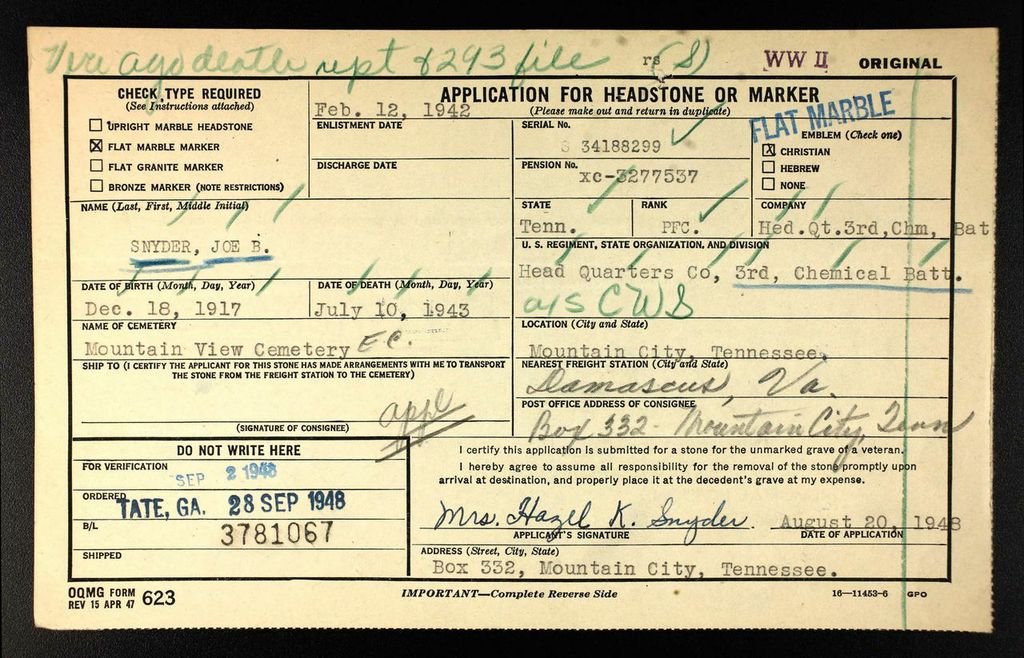 death rept & 293 file rs (S) WW II ORIGINAL
CHECK TYPE REQUIRED
(See Instructions attached)
UPRIGHT MARBLE HEADSTONE
☒ FLAT MARBLE MARKER
FLAT GRANITE MARKER
BRONZE MARKER (NOTE RESTRICTIONS)
Feb. 12, 1942
ENLISTMENT DATE
DISCHARGE DATE
APPLICATION FOR HEADSTONE OR MARKER
(Please make out and return in duplicate)
SERIAL No.
34188299
PENSION No.
xc-3277537
FLAT MARBLE
EMBLEM (Check one)
☒ CHRISTIAN
HEBREW
NONE
NAME (Last, First, Middle Initial)
SNYDER, JOE B.
STATE
Tenn.
RANK
PFC.
COMPANY
Hed.Qt.3rd,Chm, Bat
U. S. REGIMENT, STATE ORGANIZATION, AND DIVISION
Head Quarters Co, 3rd, Chemical Batt.
a/s CWS
DATE OF BIRTH (Month, Day, Year)
Dec. 18, 1917
DATE OF DEATH (Month, Day, Year)
July 10, 1943
NAME OF CEMETERY
Mountain View Cemetery E.C.
LOCATION (City and State)
Mountain City, Tennessee.
SHIP TO (I CERTIFY THE APPLICANT FOR THIS STONE HAS MADE ARRANGEMENTS WITH ME TO TRANSPORT
THE STONE FROM THE FREIGHT STATION TO THE CEMETERY)
appl
(SIGNATURE OF CONSIGNEE)
NEAREST FREIGHT STATION (City and State)
Damascus, Va.
POST OFFICE ADDRESS OF CONSIGNEE
Box 332- Mountain City, Tenn
DO NOT WRITE HERE
FOR VERIFICATION
SEP 2 1948
ORDERED
TATE, GA. 28 SEP 1948
B/L
3781067
SHIPPED
I certify this application is submitted for a stone for the unmarked grave of a veteran.
I hereby agree to assume all responsibility for the removal of the stone promptly upon
arrival at destination, and properly place it at the decedent's grave at my expense.
Mrs. Hazel K. Snyder. August 20, 1948
APPLICANT'S SIGNATURE DATE OF APPLICATION
ADDRESS (Street, City, State)
Box 332, Mountain City, Tennessee.
OQMG FORM
REV 15 APR 47 623
IMPORTANT—Complete Reverse Side
16—11453-6 GPO